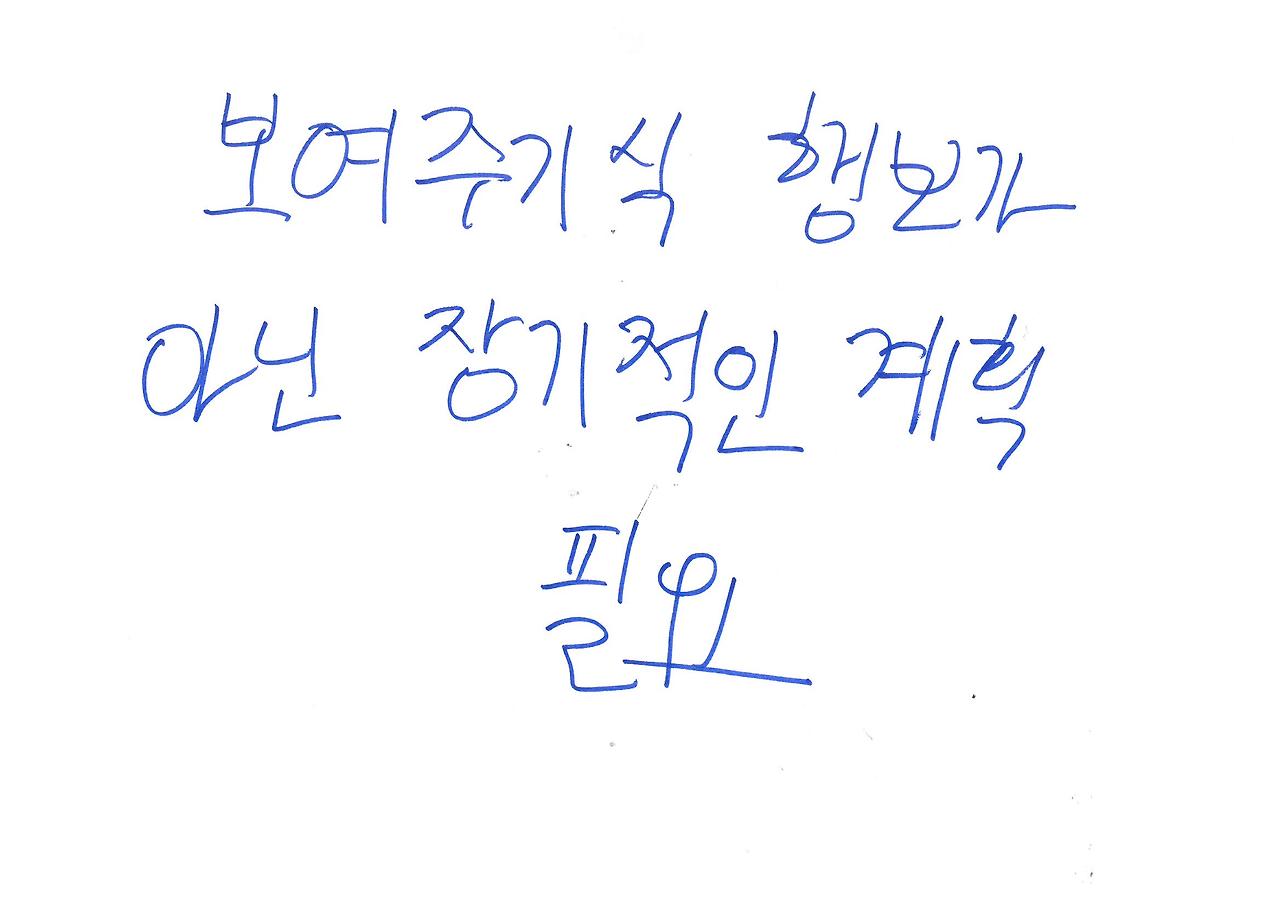 보여주기식 행보가
아닌 장기적인 계획
필요